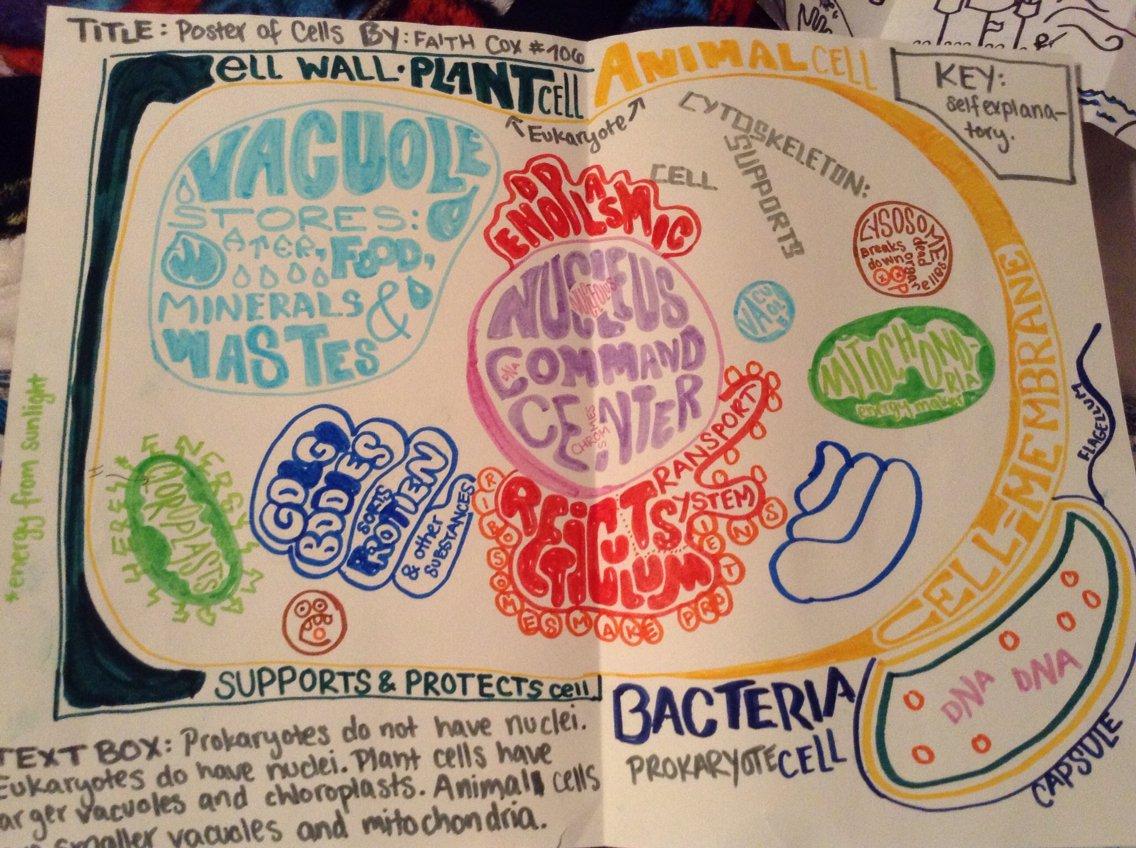 TITLE: Poster of Cells BY: FAITH COX #106
CELL WALL • PLANT CELL
ANIMAL CELL
Eukaryote
KEY:
self explana-
tory.
CYTOSKELETON:
SUPPORTS
CELL
VACUOLE
STORES:
WATER, FOOD,
MINERALS &
WASTES
ENDOPLASMIC
NUCLEUS
NUCLEOLUS
COMMAND
DNA
CENTER
CHROMOSOMES
RETICULUM
TRANSPORT
SYSTEM
RIBOSOMES MAKE PROTEINS
LYSOSOMES
Breaks
down
dead
organelles
VACUOLE
MITOCHOND-
RIA
energy maker
CELL-MEMBRANE
FLAGELLUM
*energy from sunlight
CHLOROPLASTS
GOLGI
BODIES
SORTS
PROTIEN
& other
SUBSTANCES
SUPPORTS & PROTECTS cell
BACTERIA
PROKARYOTE CELL
DNA DNA
CAPSULE
TEXT BOX: Prokaryotes do not have nuclei.
Eukaryotes do have nuclei. Plant cells have
larger vacuoles and chloroplasts. Animal cells
smaller vacuoles and mitochondria.